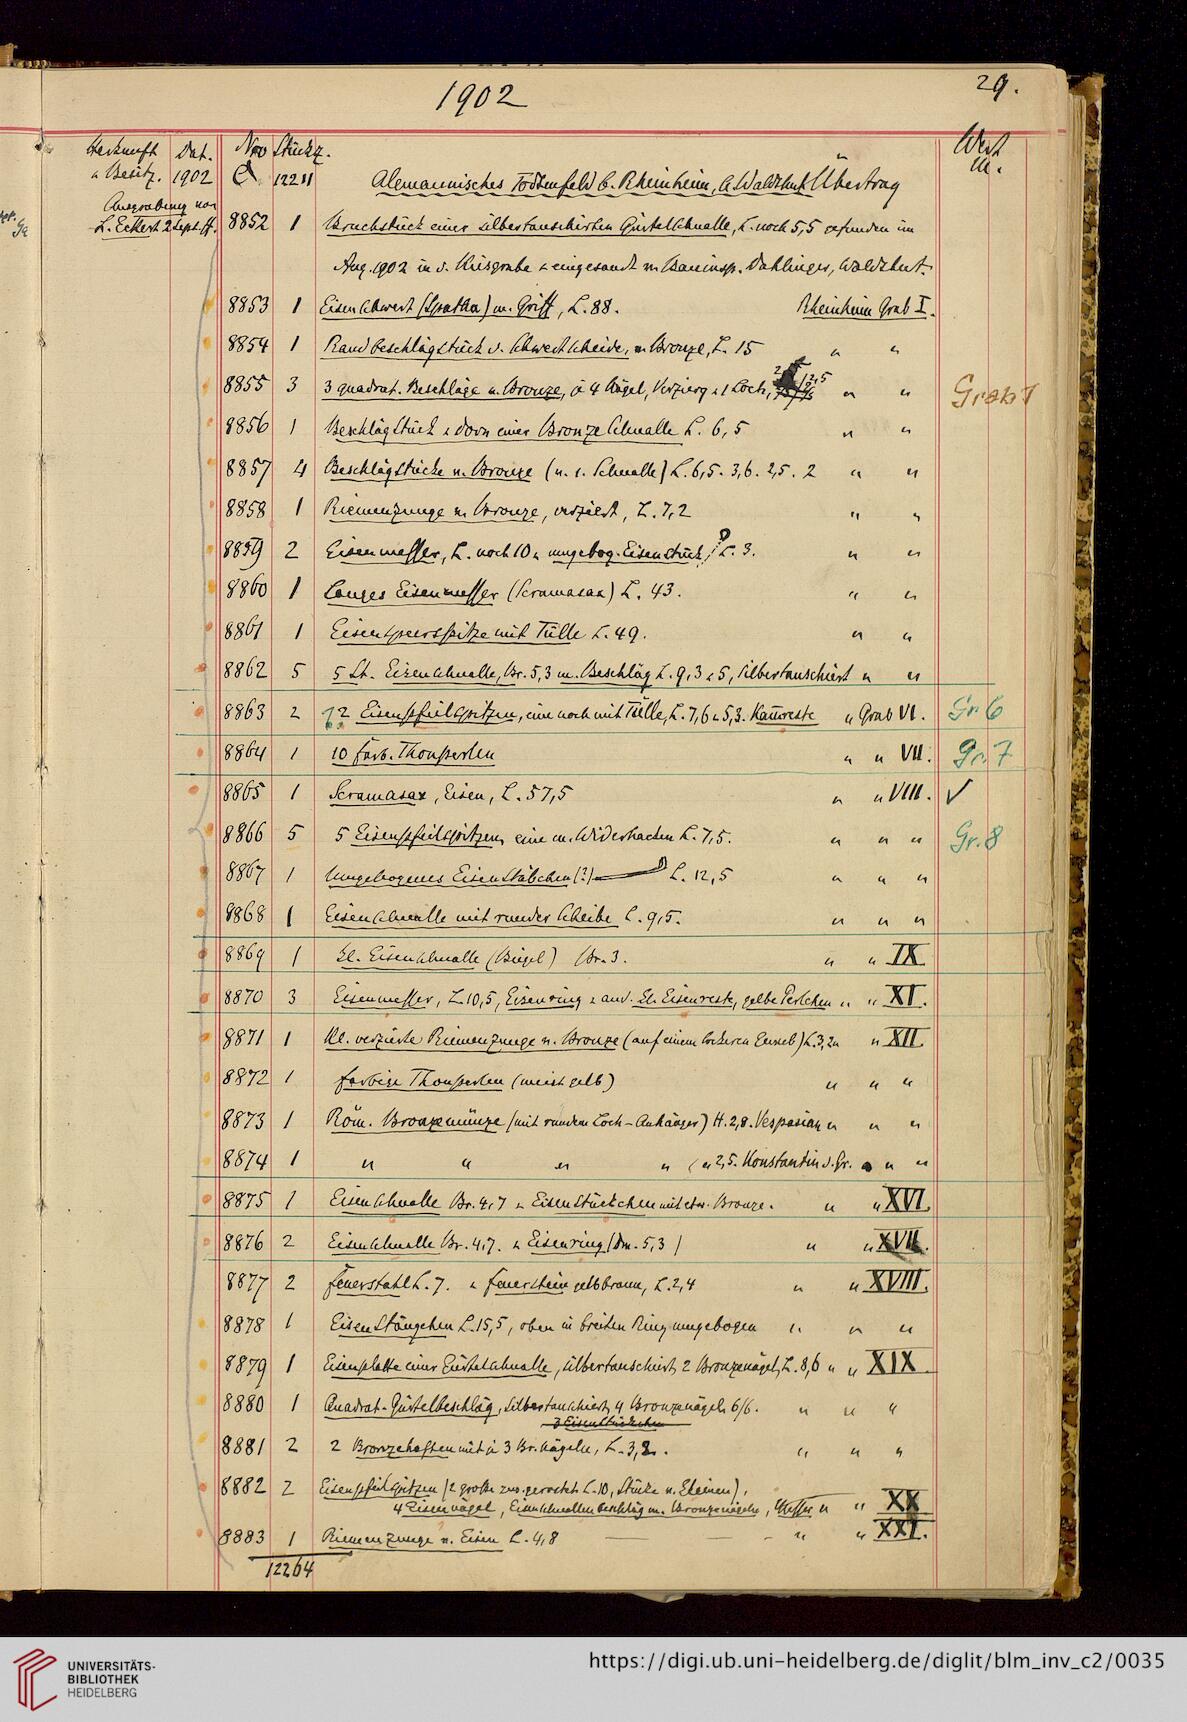 1902
29.
Herkunft Dat. Nro Stückz. Wert
u. Besitz. 1902 C 12211 Alemannisches Todtenfeld b. Rheinheim, A. Waldshut Übertrag M.
Ausgrabung von
L. Eckert 2 Sept. ff. 8852 1 Bruchstück einer silbertauschirten Gürtelschnalle, L. noch 5,5 gefunden im
Aug. 1902 in d. Kiesgrube u. eingesandt v. Bauinsp. Dahlinger, Waldshut.
8853 1 Eisenschwert (Spatha) m. Griff, L. 88. Rheinheim Grab I.
8854 1 Randbeschlägstück d. Schwertscheide, v. Bronze, L. 15 " "
8855 3 3 quadrat. Beschläge v. Bronze, à 4 Nägel, Verzierg u. 1 Loch, " " Grab 1
8856 1 Beschlägstück u. Dorn einer Bronzeschnalle L. 6,5 " "
8857 4 Beschlägstücke v. Bronze (v. e. Schnalle) L. 6,5. 3,6. 2,5. 2 " "
8858 1 Riemenzunge v. Bronze, verziert, L. 7,2 " "
8859 2 Eisenmesser, L. noch 10 u. umgebog. Eisenstück, L. 3. " "
8860 1 Langes Eisenmesser (Scramasax) L. 43. " "
8861 1 Eisenspeerspitze mit Tülle L. 49. " "
8862 5 5 St. Eisenschnalle, Br. 5,3 m. Beschläg L. 9,3 u. 5, silbertauschiert " "
8863 2 2 Eisenpfeilspitzen, eine noch mit Tülle, L. 7,6 u. 5,3. " Grab VI. Gr. 6
8864 1 10 farb. Thonperlen " " VII. Gr. 7
8865 1 Scramasax, Eisen, L. 57,5 " " VIII. ✓
8866 5 5 Eisenpfeilspitzen, eine m. Widerhacken L. 7,5. " " " Gr. 8
8867 1 Umgebogenes Eisenstäbchen (?) L. 12,5 " " "
8868 1 Eisenschnalle mit runder Scheibe L. 9,5. " " "
8869 1 kl. Eisenschnalle (Bügel) Br. 3. " " IX
8870 3 Eisenmesser, L. 10,5, Eisenring u. and. kl. Eisenreste, gelbe Perlchen " " XI.
8871 1 Kl. verzierte Riemenzunge v. Bronze (auf einem L. 3,2 " " XII.
8872 1 farbige Thonperlen (meist gelb) " " "
8873 1 Röm. Bronzemünze (mit rundem Loch - Anhänger) H. 2,8. Vespasian " " "
8874 1 " " " " ( " 2,5. Konstantin d. Gr. " " "
8875 1 Eisenschnalle Br. 4,7 u. Eisenstückchen mit etw. Bronze. " " XVI.
8876 2 Eisenschnalle Br. 4,7. u. Eisenring (Dm. 5,3) " " XVII.
8877 2 Feuerstahl L. 7. u. Feuerstein gelbbraun, L. 2,4 " " XVIII.
8878 1 Eisenstängchen L. 15,5, oben in breiten Ring umgebogen " " "
8879 1 Eisenplatte einer Gürtelschnalle, silbertauschiert, 2 Bronzenägel, L. 8,6 " " XIX
8880 1 Quadrat. Gürtelbeschläg, silbertauschiert, 4 Bronzenägel, 6/6. " " "
3 Eisenstückchen
8881 2 2 Bronzehaften mit je 3 Br. nägeln, L. 3,2. " " "
8882 2 Eisenpfeilspitzen (2 große zus. gerostet L. 10, Stücke v. kleinen),
4 Eisennägel, Eisenschnallenbeschläg m. Bronzenägeln, Messer " " XX
8883 1 Riemenzunge v. Eisen L. 4,8 " " XXI.
12264
UNIVERSITÄTS-
BIBLIOTHEK
HEIDELBERG
https://digi.ub.uni-heidelberg.de/diglit/blm_inv_c2/0035